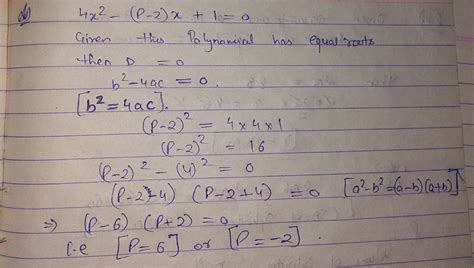 4x² - (P-2)x + 1 = 0
Given this Polynomial has equal roots
then D = 0
b² - 4ac = 0.
[b² = 4ac].
(P-2)² = 4×4×1
(P-2)² = 16
(P-2)² - (4)² = 0
(P-2-4) (P-2+4) = 0 [a²-b²=(a-b)(a+b)]
⇒ (P-6) (P+2) = 0
i.e [P=6] or [P=-2].